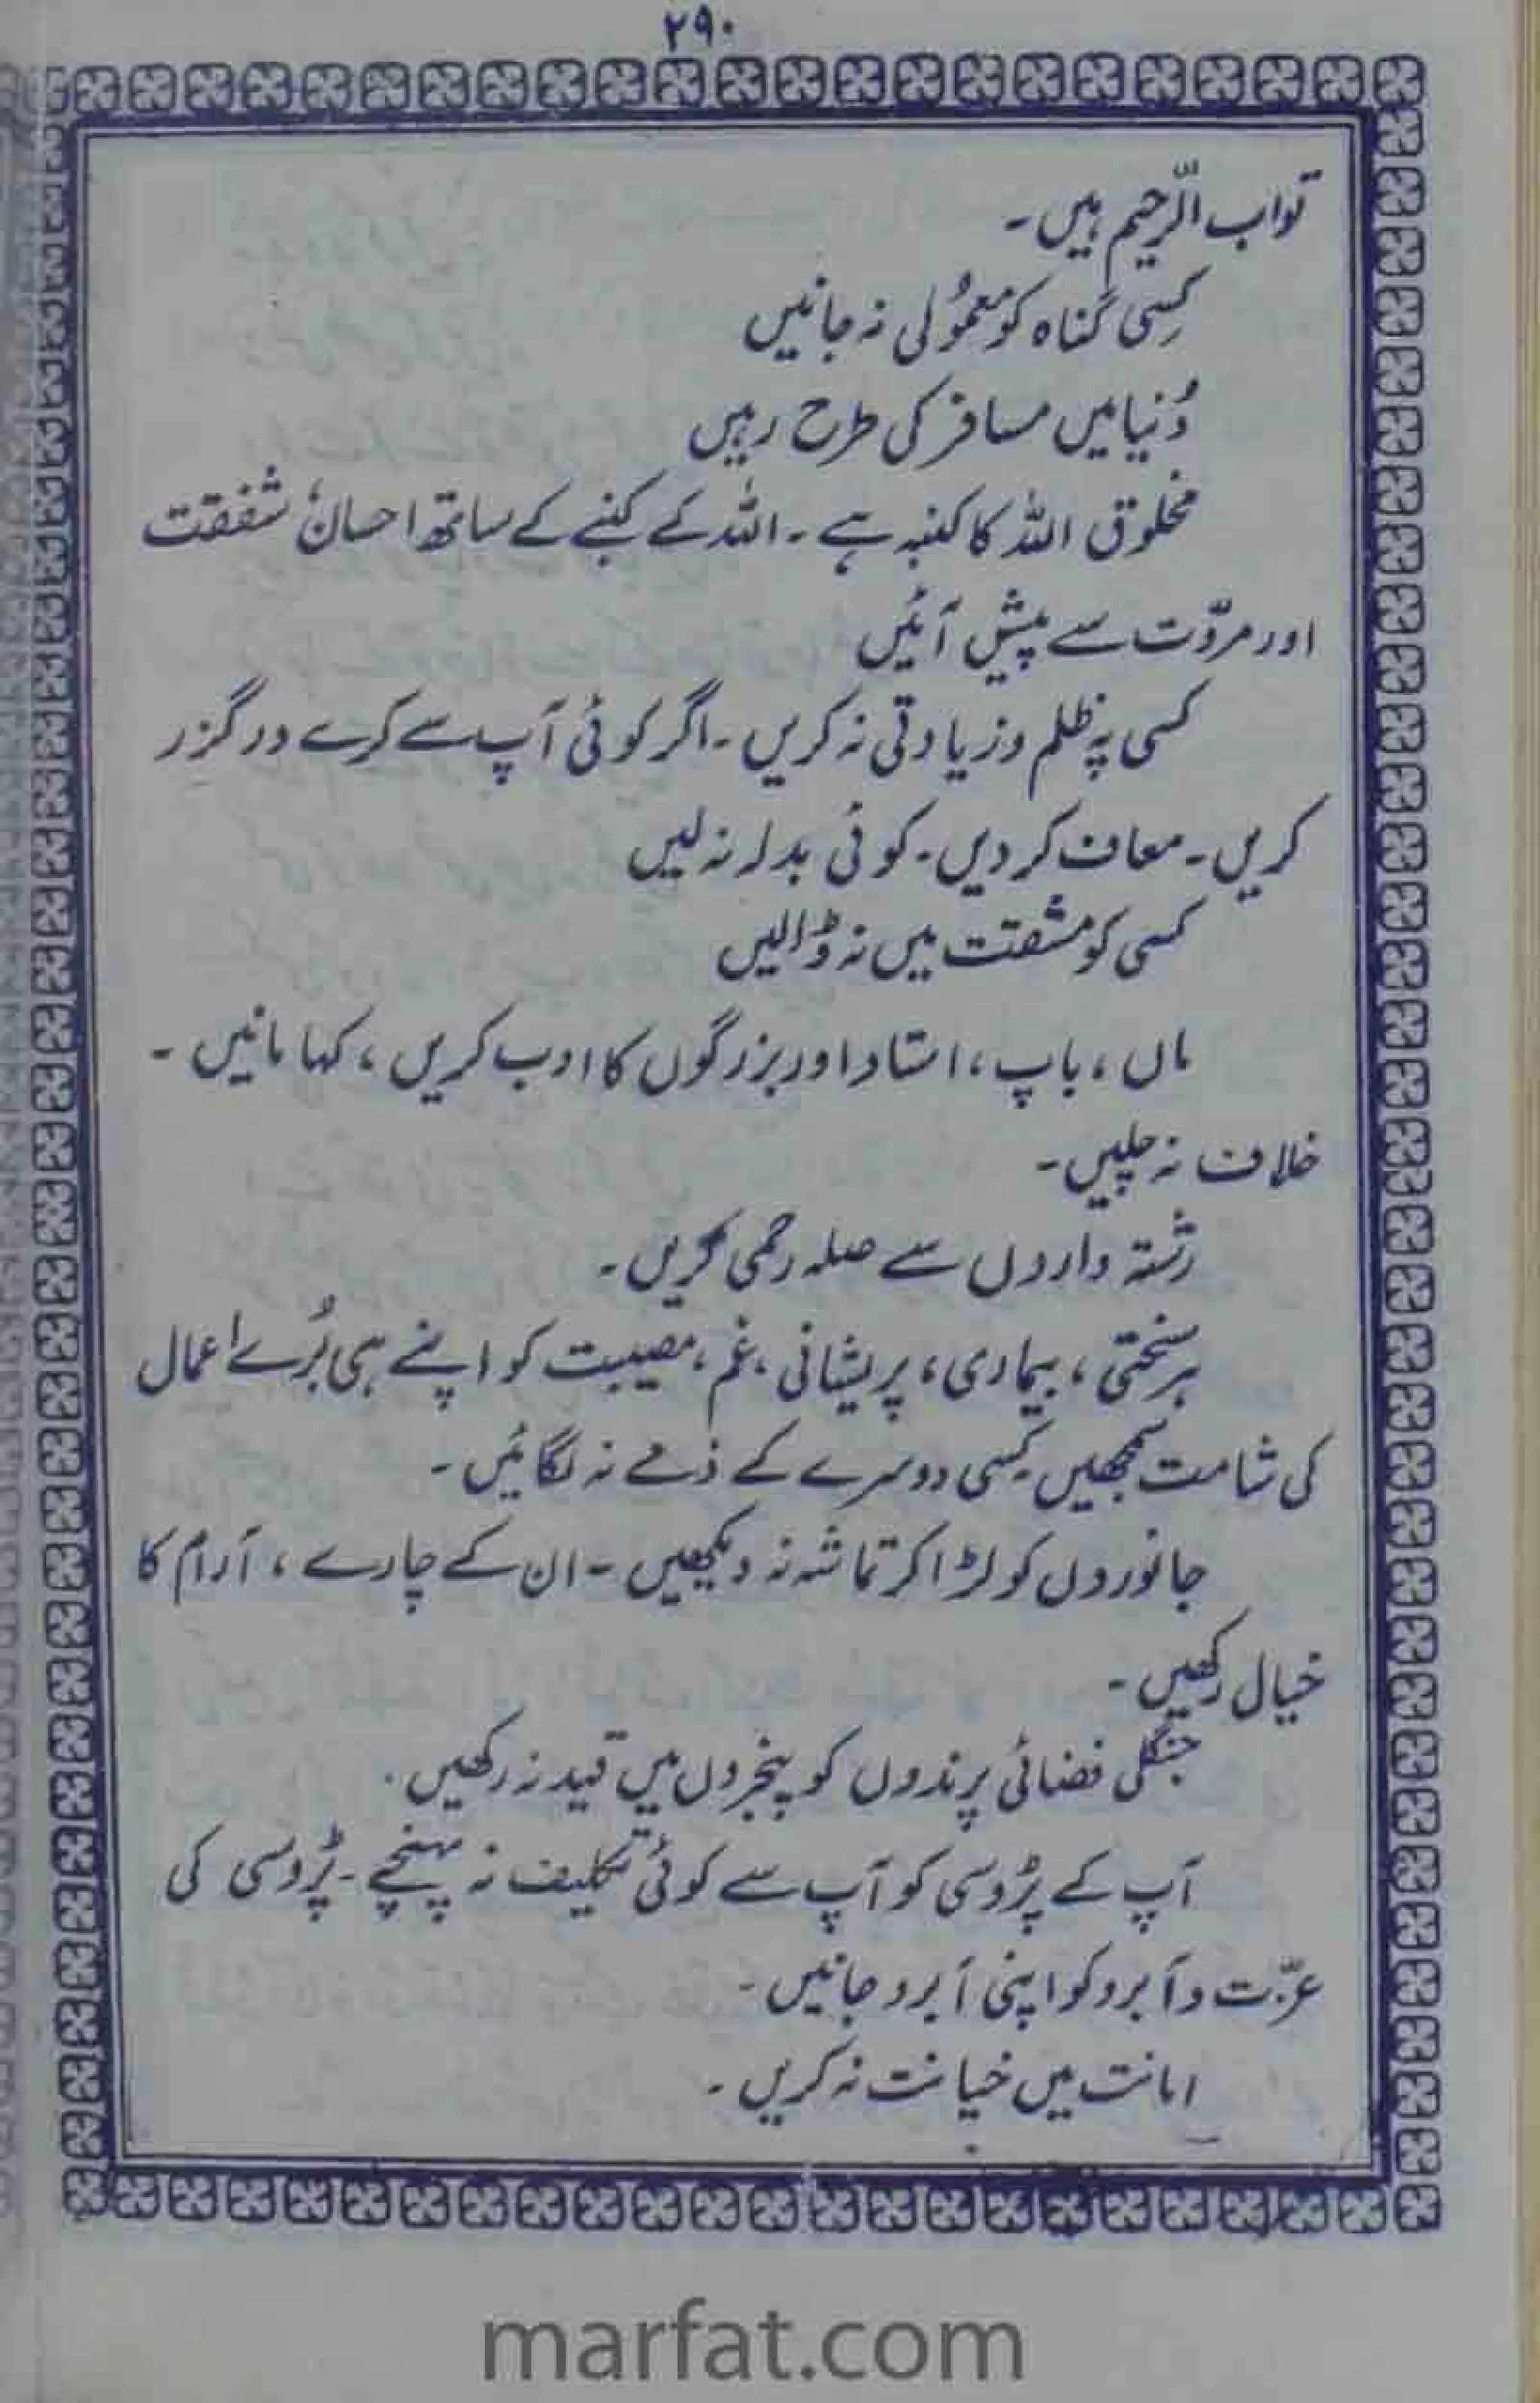 ۲۹۰
تواب الرّحیم ہیں۔
کِسی گناہ کو معمُولی نہ جانیں
دُنیا میں مسافر کی طرح رہیں
مخلوق اللہ کا کنبہ ہے ۔ اللہ کے کنبے کے ساتھ احسان، شفقت
اور مروّت سے پیش آئیں
کسی پہ ظلم و زیادتی نہ کریں ۔ اگر کوئی آپ سے کرے درگزر
کریں ۔ معاف کر دیں ۔ کوئی بدلہ نہ لیں
کسی کو مشقت میں نہ ڈالیں
ماں ، باپ ، استاد اور بزرگوں کا ادب کریں ، کہا مانیں ۔
خلاف نہ چلیں ۔
رشتہ داروں سے صلہ رحمی کریں ۔
ہر سختی ، بیماری ، پریشانی ، غم ، مصیبت کو اپنے ہی بُرے اعمال
کی شامت سمجھیں کسی دوسرے کے ذمے نہ لگائیں ۔
جانوروں کو لڑا کر تماشہ نہ دیکھیں ۔ ان کے چارے ، آرام کا
خیال رکھیں ۔
جنگلی فضائی پرندوں کو پنجروں میں قید نہ رکھیں ۔
آپ کے پڑوسی کو آپ سے کوئی تکلیف نہ پہنچے ۔ پڑوسی کی
عزّت و آبرو کو اپنی آبرو جانیں ۔
امانت میں خیانت نہ کریں ۔
marfat.com